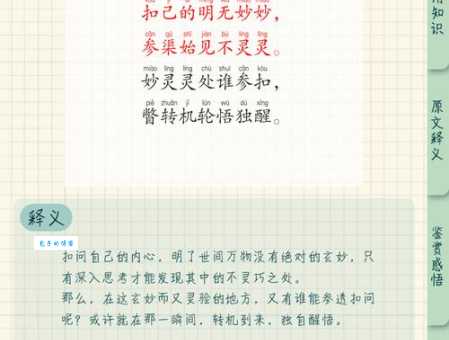 扣己的明无妙妙,
cān qú shǐ jiàn bù líng líng
参渠始见不灵灵。
miào líng líng chù shuí cān kòu
妙灵灵处谁参扣,
piē zhuǎn jī lún wù dú xǐng
瞥转机轮悟独醒。
释义
扣问自己的内心,明了世间万物没有绝对的玄妙,只
有深入思考才能发现其中的不灵巧之处。
那么,在这玄妙而又灵验的地方,又有谁能参透扣问
呢?或许就在那一瞬间,转机到来,独自醒悟。
知识
原文释义
鉴赏感悟